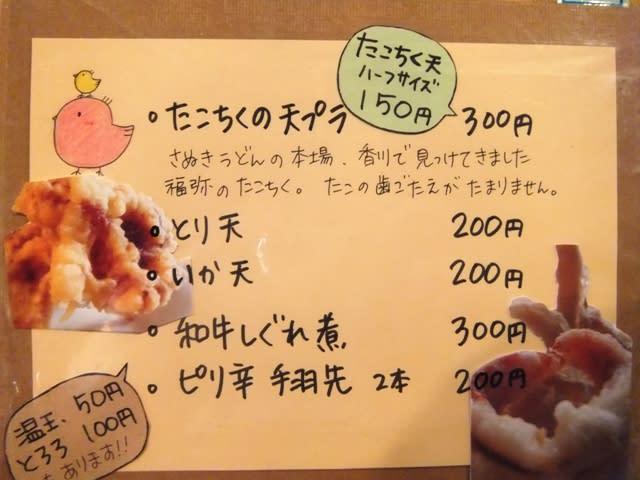 たこちく天
ハーフサイズ
150円
たこちくの天プラ 300円
さぬきうどんの本場、香川で見つけてきました
福弥のたこちく。たこの歯ごたえがたまりません。
とり天 200円
いか天 200円
和牛しぐれ煮 300円
ピリ辛 手羽先 2本 200円
温玉、50円
とろろ 100円
あります!!